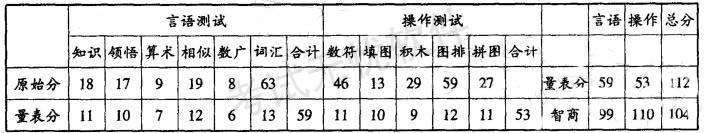 言语测试 操作测试 言语 操作 总分
知识 领悟 算术 相似 数广 词汇 合计 数符 填图 积木 图排 拼图 合计
原始分 18 17 9 19 8 63 46 13 29 59 27 量表分 59 53 112
量表分 11 10 7 12 6 13 59 11 10 9 12 11 53 智商 99 110 104